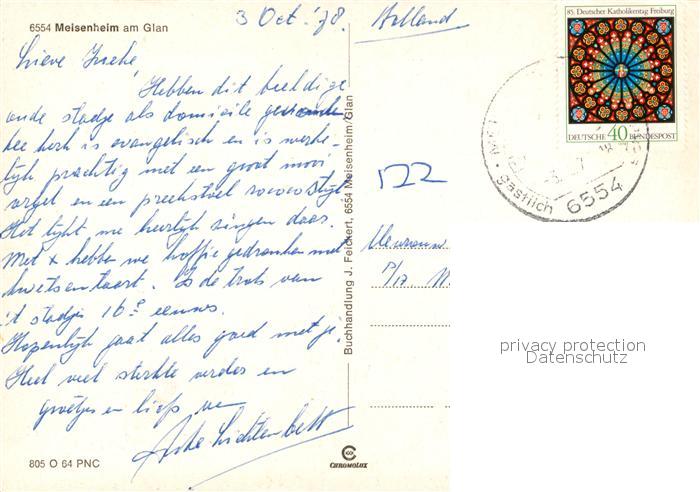 3 Oct. '78.
Holland
6554 Meisenheim am Glan
Lieve
Hebben dit beeldige
oude stadje als domicile
kerk is evangelisch en is
prachtig met een groot mooi
orgel en een preekstoel rococostijl
Het lijkt me heerlijk zingen daar.
Met x hebben we koffie gedronken met
kwetsentaart. Is de trots van
't stadje 16e eeuws.
Hopenlijk gaat alles goed met je.
Heel veel sterkte verder en
groetjes en liefs van
805 O 64 PNC
Buchhandlung J. Feickert, 6554 Meisenheim/Glan
CHROMOLUX
85. Deutscher Katholikentag Freiburg
DEUTSCHE 40 BUNDESPOST
gastlich 6554
Mevrouw
P/17
privacy protection
Datenschutz